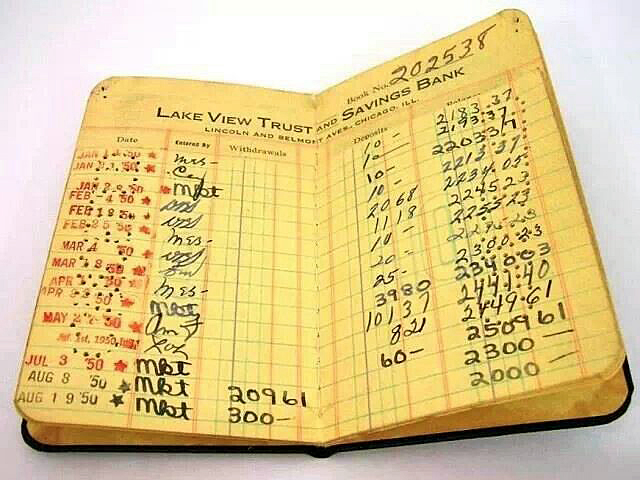 Book No. 202538
LAKE VIEW TRUST AND SAVINGS BANK
LINCOLN AND BELMONT AVES., CHICAGO, ILL.
Date Entered By Withdrawals Deposits Balance
JAN '50 Mrs- 10- 2183.37
JAN 50 10- 2193.37
JAN 50 Mbt 10- 2203.37
FEB -4 '50 10- 2213.37
FEB 18 '50 20 68 2234.05
FEB 25 '50 Mrs- 11 18 2245.23
MAR 4 '50 10- 2255.23
MAR 18 '50 20- 2275.23
APR '50 Mrs- 25- 2300.23
APR 50 Mbt 39 80 2340 03
MAY '50 101 37 2441.40
Jul. 1st, 1950, Int. 8 21 2449.61
JUL 3 '50 Mbt 60- 2509 61
AUG 8 '50 Mbt 209 61 2300 —
AUG 19 '50 Mbt 300- 2000 —